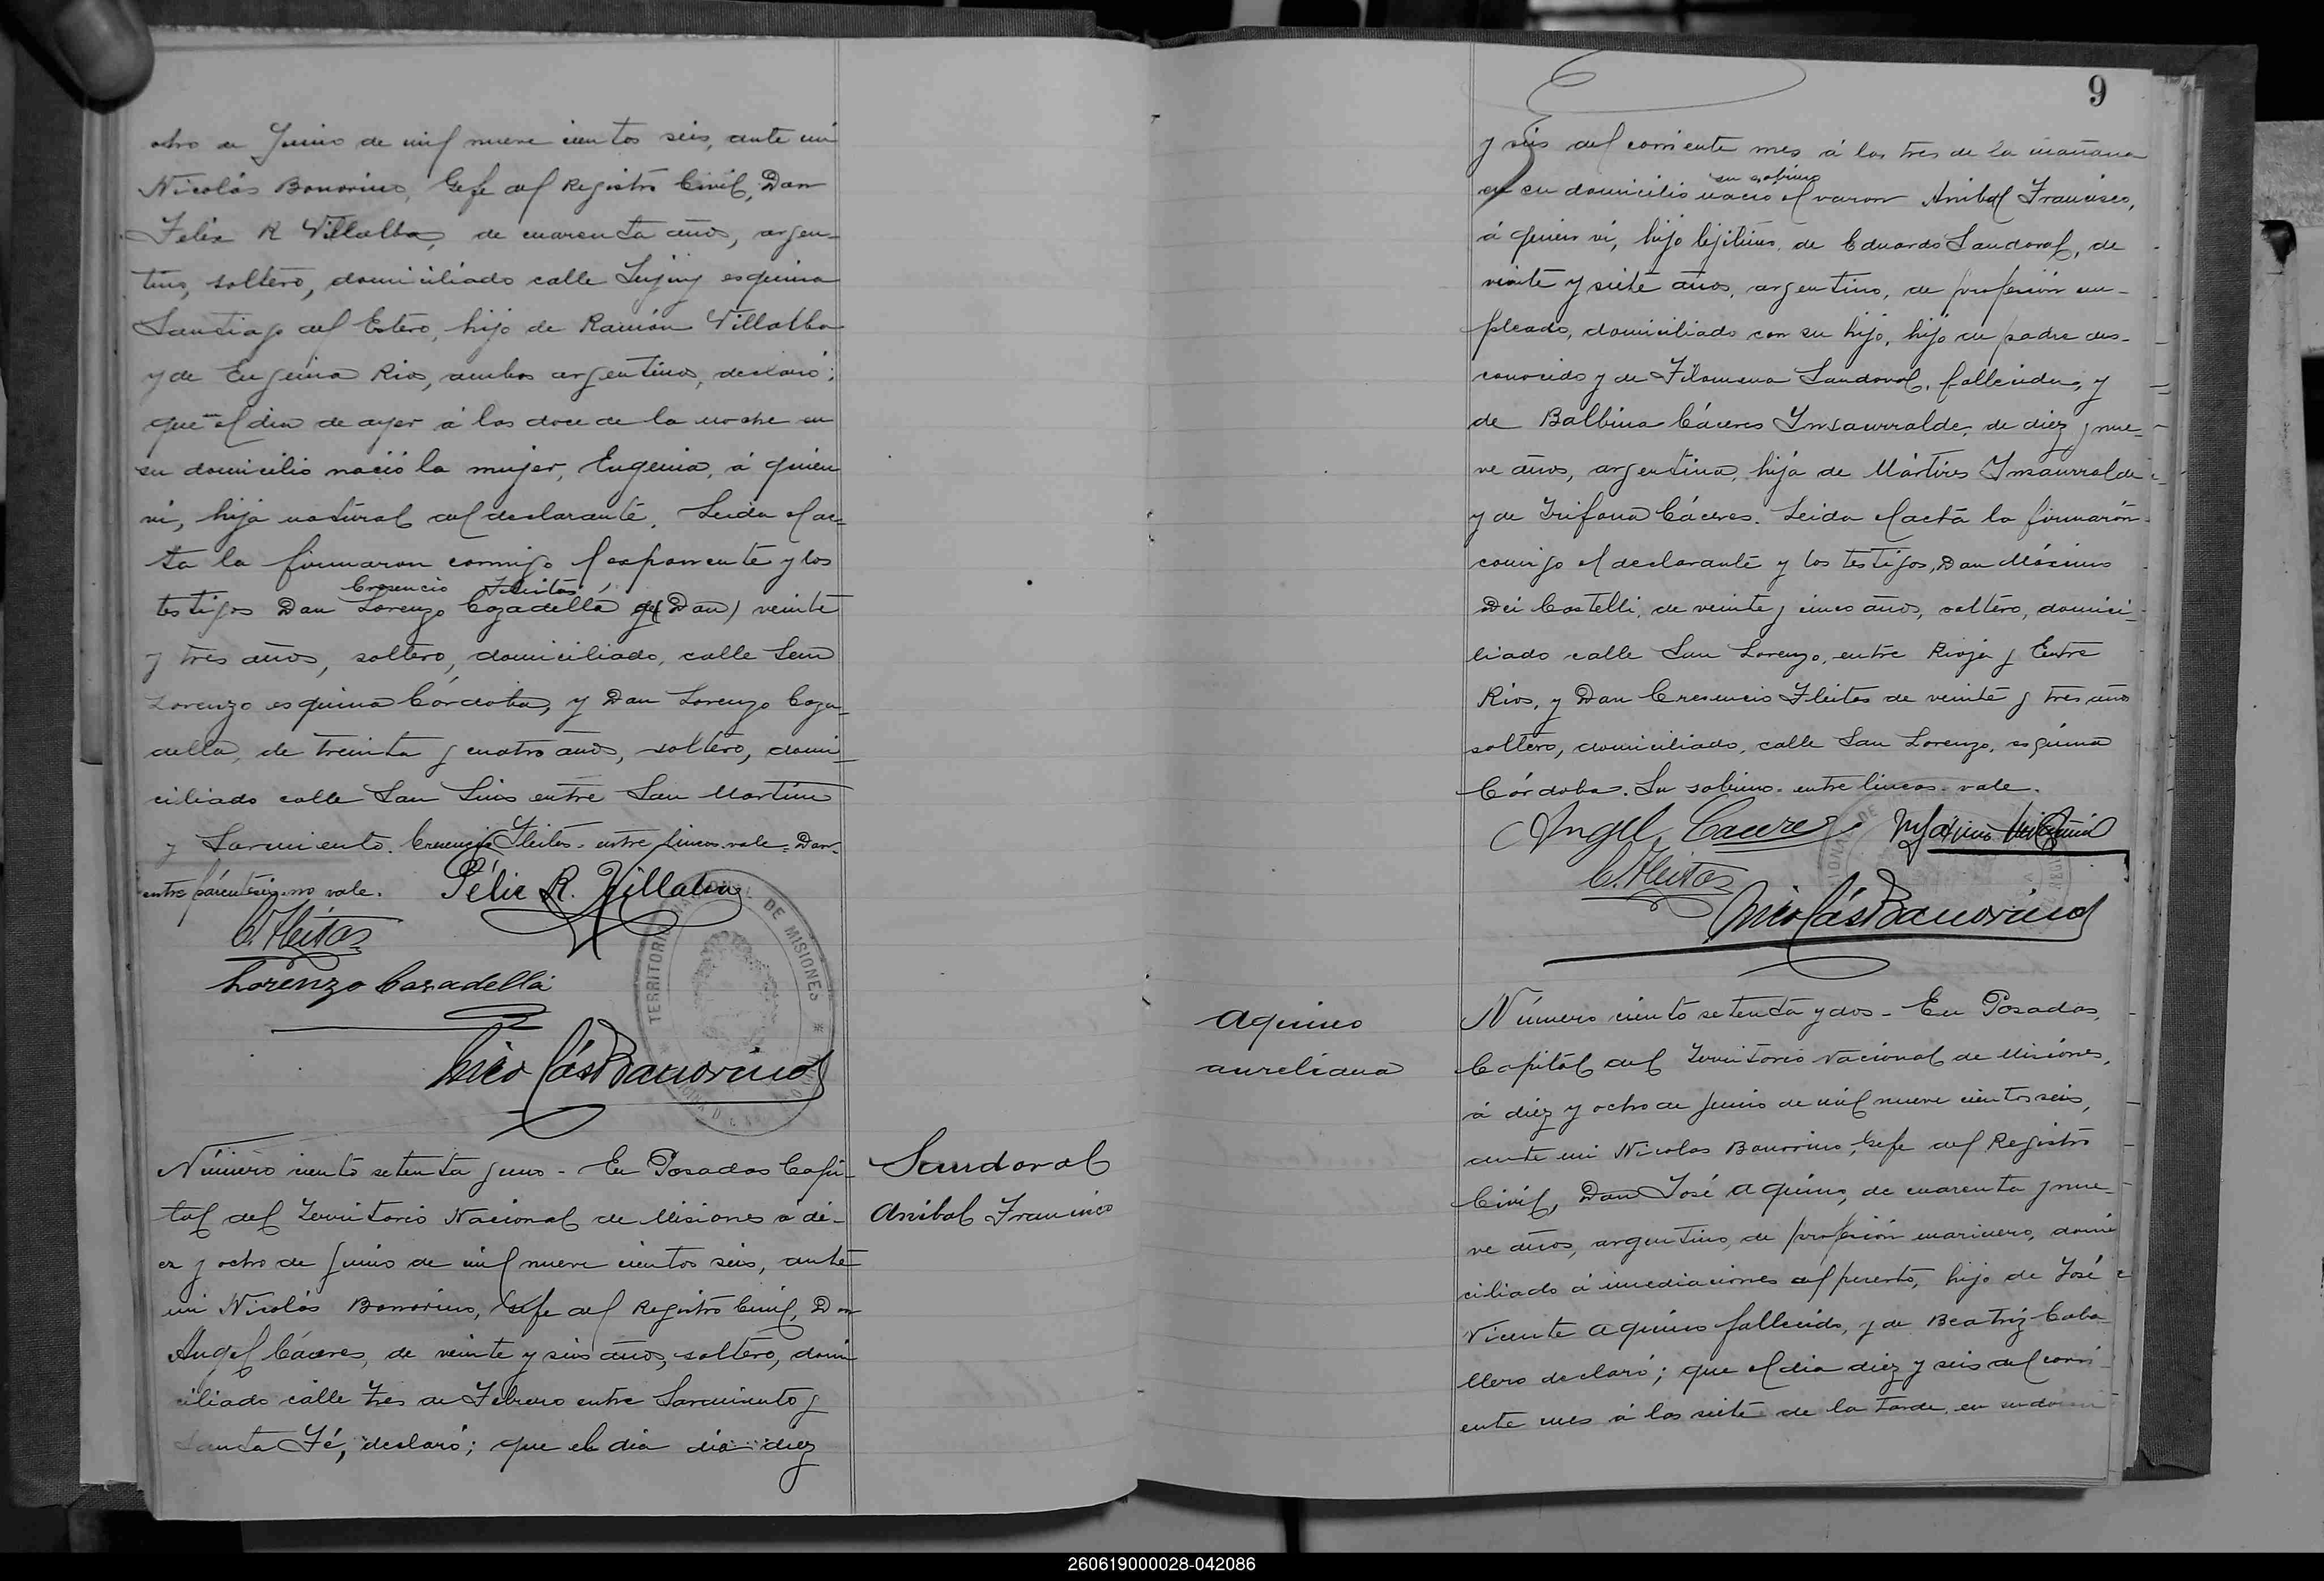 ocho de Junio de mil nueve cientos seis, ante mi
Nicolás Bonorino, Gefe del Registro Civil, Don
Felix R Villalba, de cuarenta años, argen-
tino, soltero, domiciliado calle Jujuy esquina
Santiago del Estero, hijo de Ramón Villalba
y de Eugenia Rios, ambos argentinos, declaró;
que el dia de ayer á las doce de la noche en
su domicilio nació la mujer, Eugenia, á quien
vi, hija natural del declarante. Leida el ac-
ta la firmaron conmigo el exponente y los
Cresencio Fleitas
testigos Don Lorenzo Cazadella de (Don) veinte
y tres años, soltero, domiciliado, calle San
Lorenzo esquina Córdoba, y Don Lorenzo Caza-
della, de treinta y cuatro años, soltero, domi-
ciliado calle San Luis entre San Martin
y Sarmiento. Cresencio Fleitas - entre lineas - vale = Don -
entre paréntesis - no vale.
Félix R. Villalba
C. Fleitas
Lorenzo Cazadella
Nicolás Bonorino
TERRITORIO NACIONAL DE MISIONES
Número ciento setenta y uno - En Posadas Capi-
tal del Territorio Nacional de Misiones a di-
ez y ocho de Junio de mil nueve cientos seis, ante
mi Nicolás Bonorino, Gefe del Registro Civil, Don
Angel Cáceres, de veinte y seis años, soltero, domi
ciliado calle Tres de Febrero entre Sarmiento y
Santa Fé, declaró; que el dia dia diez
Sandoval
Anibal Francisco
9
y seis del corriente mes á las tres de la mañana
su sobrino
en su domicilio nació el varon Anibal Francisco,
á quien vi, hijo lejitimo de Eduardo Sandoval, de
veinte y siete años, argentino, de profesión em-
pleado, domiciliado con su hijo, hijo de padre des-
conocido y de Filomena Sandoval, fallecida, y
de Balbina Cáceres Insaurralde, de diez y nue-
ve años, argentina, hija de Mártires Insaurralde
y de Trifona Cáceres. Leida el acta la firmarón
conmigo el declarante y los testigos, Don Máximo
Dei Castelli, de veinte y cinco años, soltero, domici-
liado calle San Lorenzo, entre Rioja y Entre
Rios, y Don Cresencio Fleitas de veinte y tres años
soltero, domiciliado, calle San Lorenzo, esquina
Córdoba. Su sobrino - entre lineas - vale.
Angel Caceres
Maximo
C. Fleitas
Nicolás Bonorino
Aquino
Aureliana
Número ciento setenta y dos - En Posadas,
Capital del Territorio Nacional de Misiones,
á diez y ocho de Junio de mil nueve cientos seis,
ante mi Nicolas Bonorino, Gefe del Registro
Civil, Don José Aquino, de cuarenta y nue-
ve años, argentino, de profesión marinero, domi
ciliado á imediaciones del puerto, hijo de José
Vicente Aquino fallecido, y de Beatriz Caba-
llero declaró; que el dia diez y seis del corri-
ente mes á las siete de la tarde, en su domi
260619000028-042086